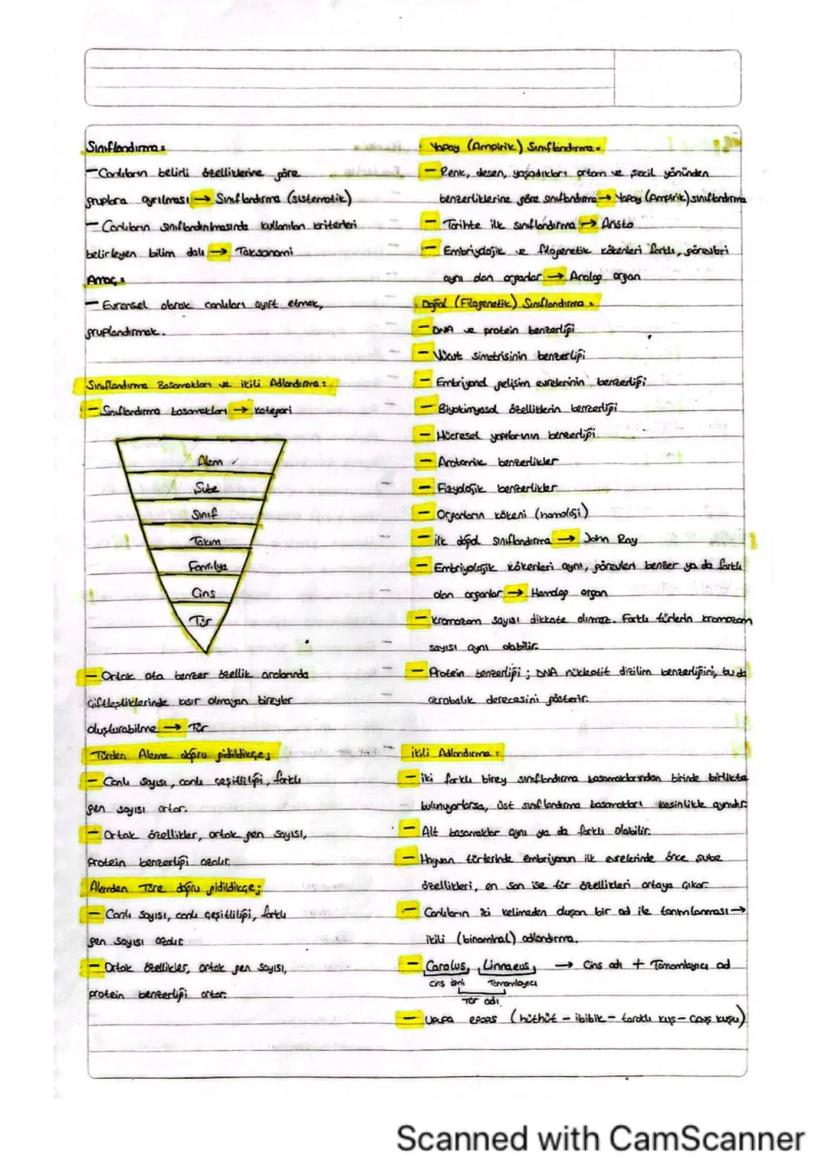 Sınıflandırma:
— Canlıların belirli özelliklerine göre
gruplara ayrılması → Sınıflandırma (sistematik)
— Canlıların sınıflandırılmasında kullanılan kriterleri
belirleyen bilim dalı → Taksonomi
Amaç:
— Evrensel olarak canlıları ayırt etmek,
gruplandırmak.
Sınıflandırma Basamakları ve İkili Adlandırma:
— Sınıflandırma basamakları → Kategori
Alem
Şube
Sınıf
Takım
Familya
Cins
Tür
— Ortak ata benzer özellik aralarında
çiftleştiklerinde kısır olmayan bireyler
oluşturabilme → Tür
Türden Aleme doğru gidildikçe;
— Canlı sayısı, canlı çeşitliliği, farklı
gen sayısı artar.
— Ortak özellikler, ortak gen sayısı,
protein benzerliği azalır.
Alemden Türe doğru gidildikçe;
— Canlı sayısı, canlı çeşitliliği, farklı
gen sayısı azalır
— Ortak özellikler, ortak gen sayısı,
protein benzerliği artar.
Yapay (Ampirik) Sınıflandırma:
— Renk, desen, yaşadıkları ortam ve şekil yönünden
benzerliklerine göre sınıflandırma → Yapay (Ampirik) sınıflandırma
— Tarihte ilk sınıflandırma → Aristo
— Embriyolojik ve filogenetik kökenleri farklı, görevleri
aynı olan organlar → Analog organ
Doğal (Filogenetik) Sınıflandırma:
— DNA ve protein benzerliği
— Vücut simetrisinin benzerliği
— Embriyonel gelişim evrelerinin benzerliği
— Biyokimyasal özelliklerin benzerliği
— Hücresel yapılarının benzerliği
— Anatomik benzerlikler
— Fizyolojik benzerlikler
— Organların kökeni (homoloji)
— İlk doğal sınıflandırma → John Ray
— Embriyolojik kökenleri aynı, görevleri benzer ya da farklı
olan organlar → Homolog organ
— Kromozom sayısı dikkate alınmaz. Farklı türlerin kromozom
sayısı aynı olabilir.
— Protein benzerliği; DNA nükleotit dizilim benzerliğini, bu da
akrabalık derecesini gösterir.
İkili Adlandırma:
— İki farklı birey sınıflandırma basamaklarından birinde birlikte
bulunuyorlarsa, üst sınıflandırma basamakları kesinlikle aynıdır.
— Alt basamaklar aynı ya da farklı olabilir.
— Hayvan türlerinde embriyonun ilk evrelerinde önce şube
özellikleri, en son ise tür özellikleri ortaya çıkar.
— Canlıların iki kelimeden oluşan bir ad ile tanımlanması →
ikili (binominal) adlandırma.
— Carolus Linnaeus → Cins adı + Tanımlayıcı ad
cins ismi Tanımlayıcı
Tür adı
— Upupa epops (hüthüt – ibibik – taraklı kuş – çavuş kuşu)
Scanned with CamScanner